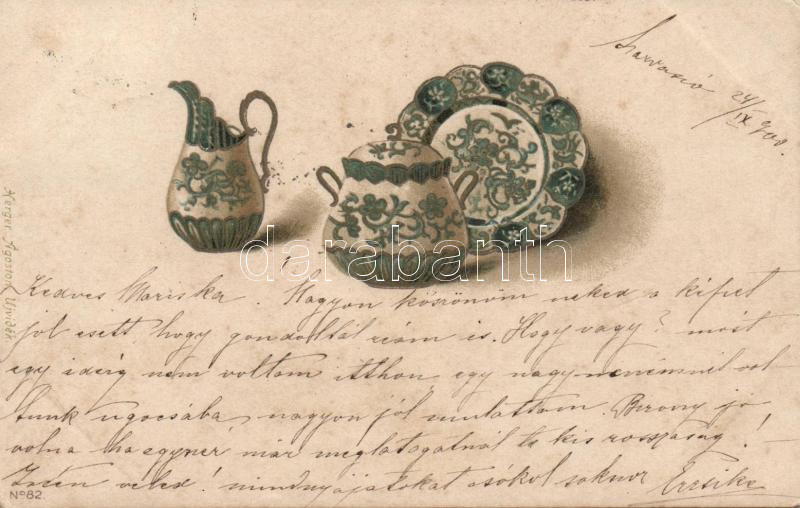 24/IX 900.
darabanth
Herger Ágoston Ujvidék
Kedves Mariska! Nagyon köszönöm neked a képet
jól esett hogy gondoltál reám is. Hogy vagy? most
egy ideig nem voltam itthon egy nagynenémnél vol
tunk ugocsába nagyon jól mulattam. Bizony jó
volna ha egyszer már meglátogatnál te kis rosszaság!
Isten veled! mindnyájatokat csókol sokszor Erzsike
No 82.